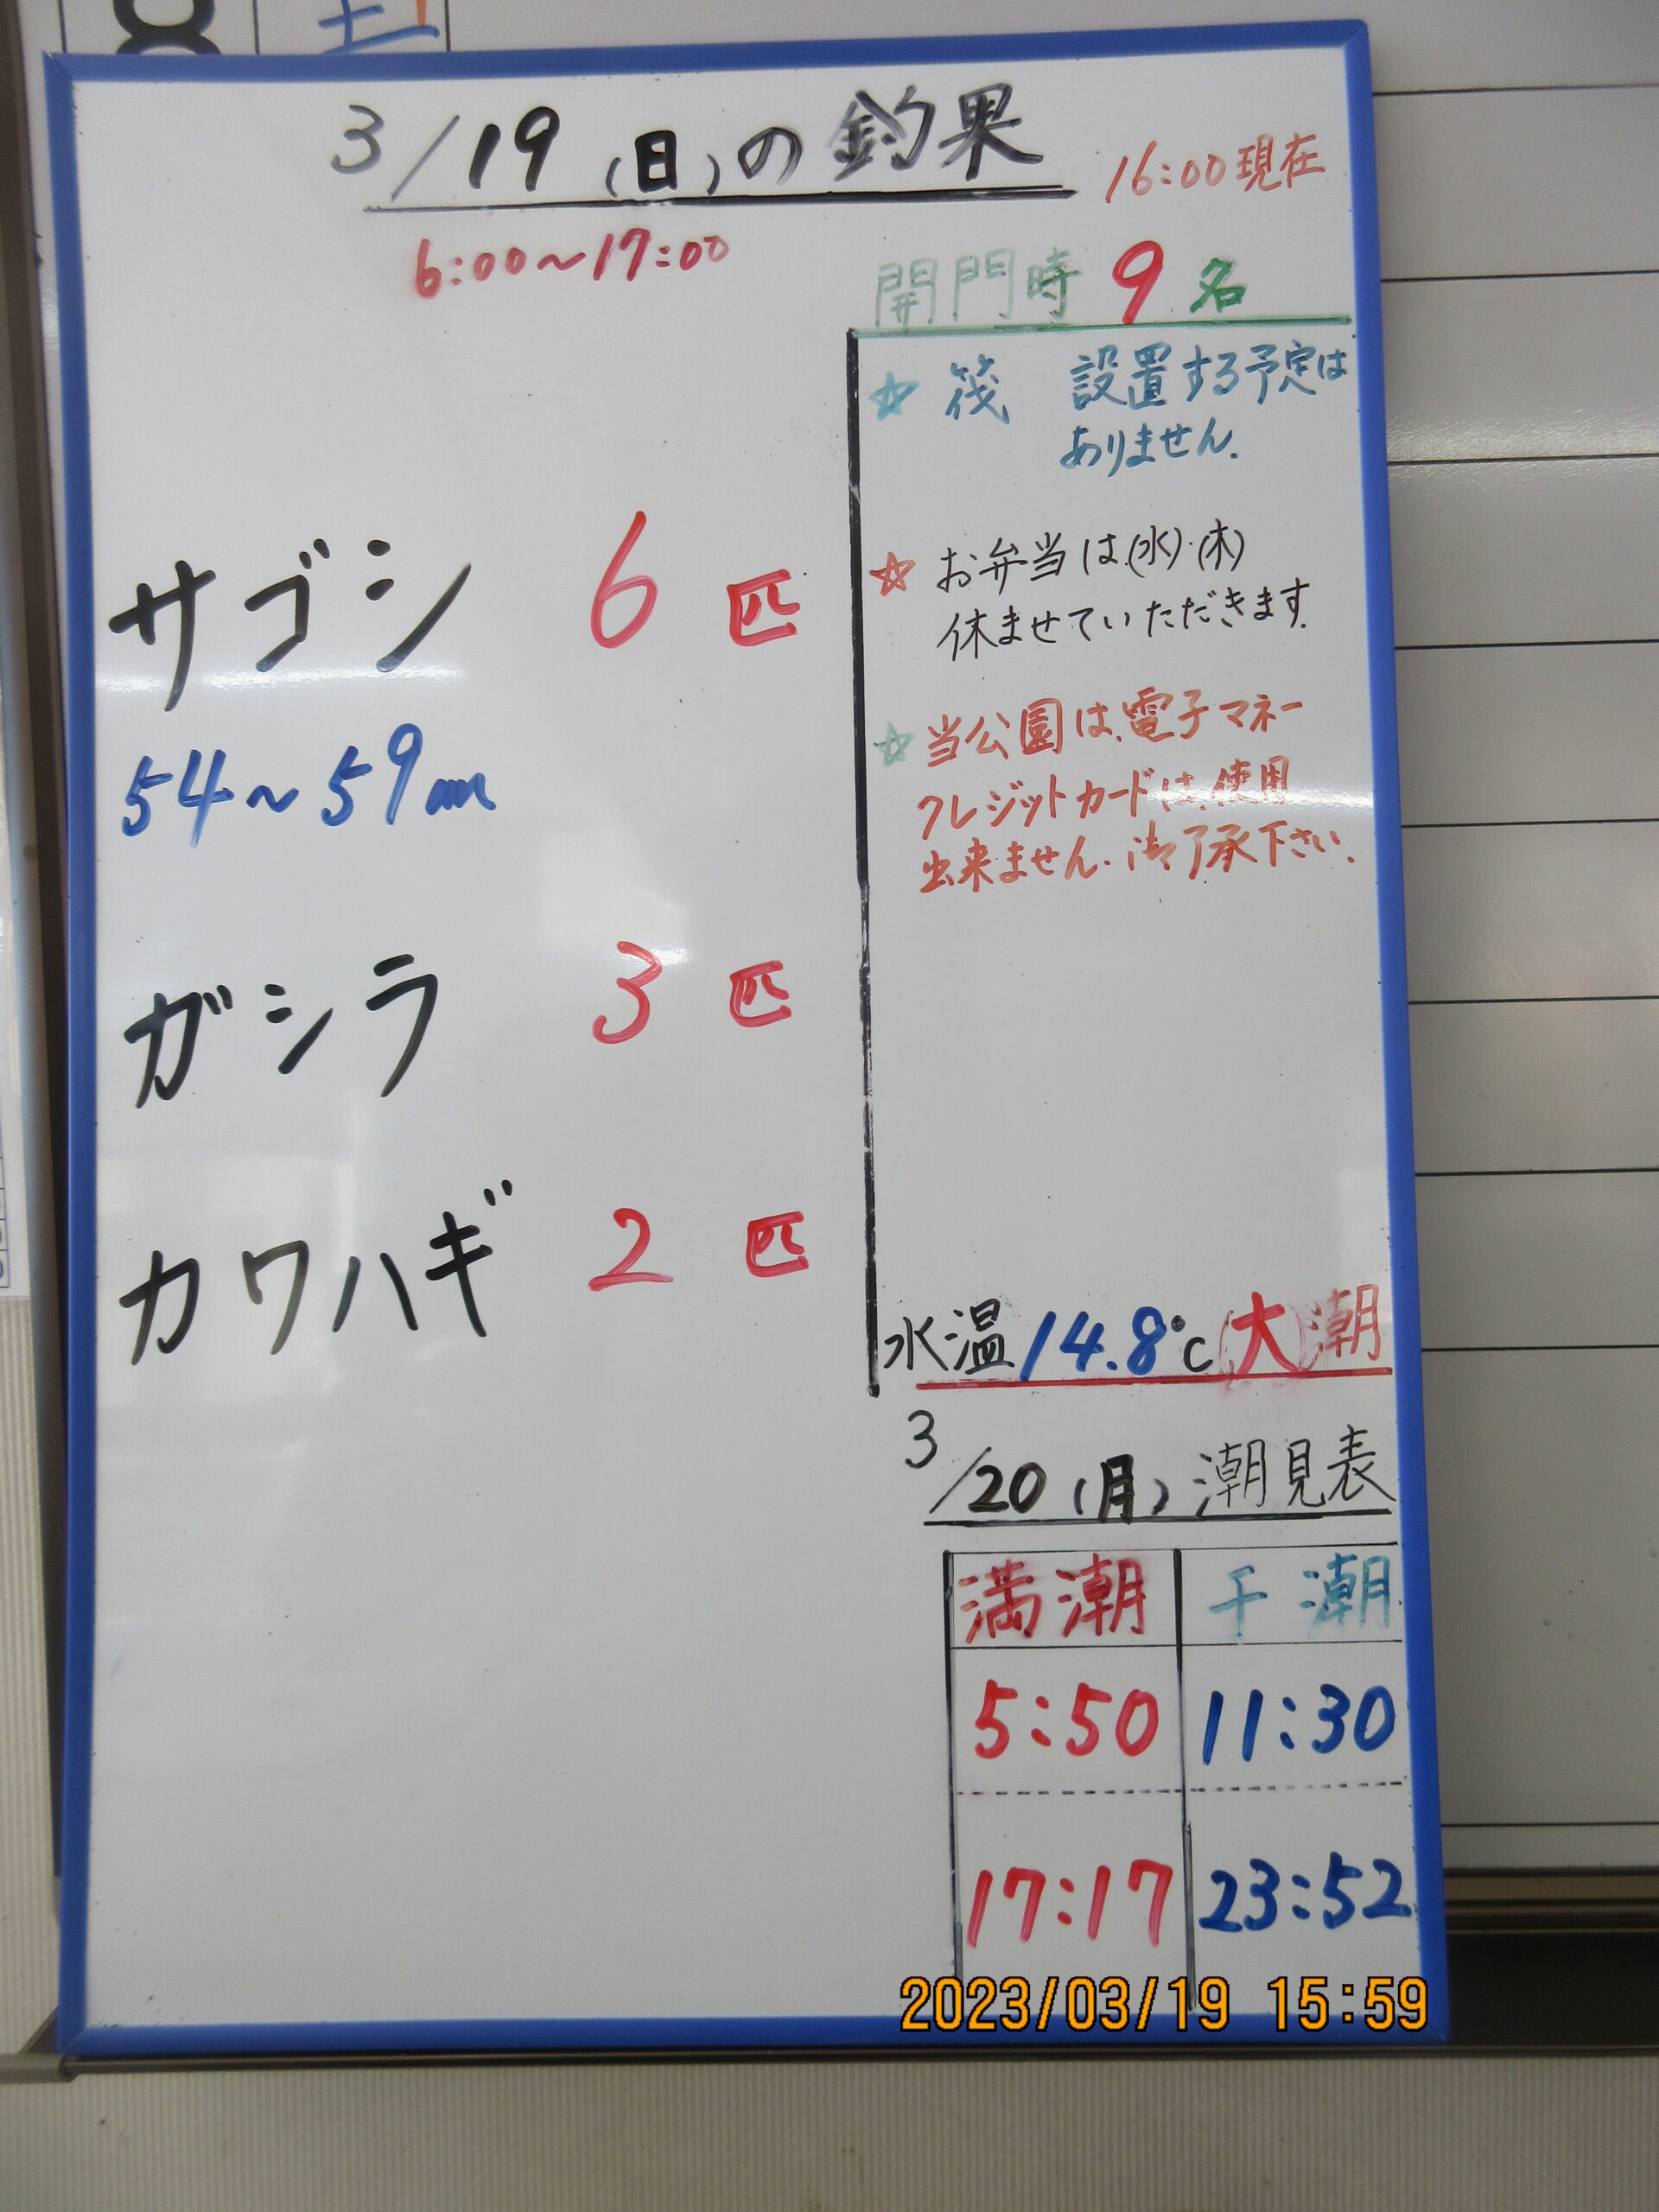 土
3/19(日)の釣果
16:00現在
6:00~17:00
開門時 9名
☆ 筏 設置する予定は
ありません.
サゴシ 6匹
54~59cm
ガシラ 3匹
カワハギ 2匹
☆ お弁当は(水)・(木)
休ませていただきます.
☆ 当公園は、電子マネー
クレジットカードは、使用
出来ません. 御了承下さい.
水温14.8℃(大)潮
3/20(月)潮見表
満潮 干潮
5:50 11:30
17:17 23:52
2023/03/19 15:59